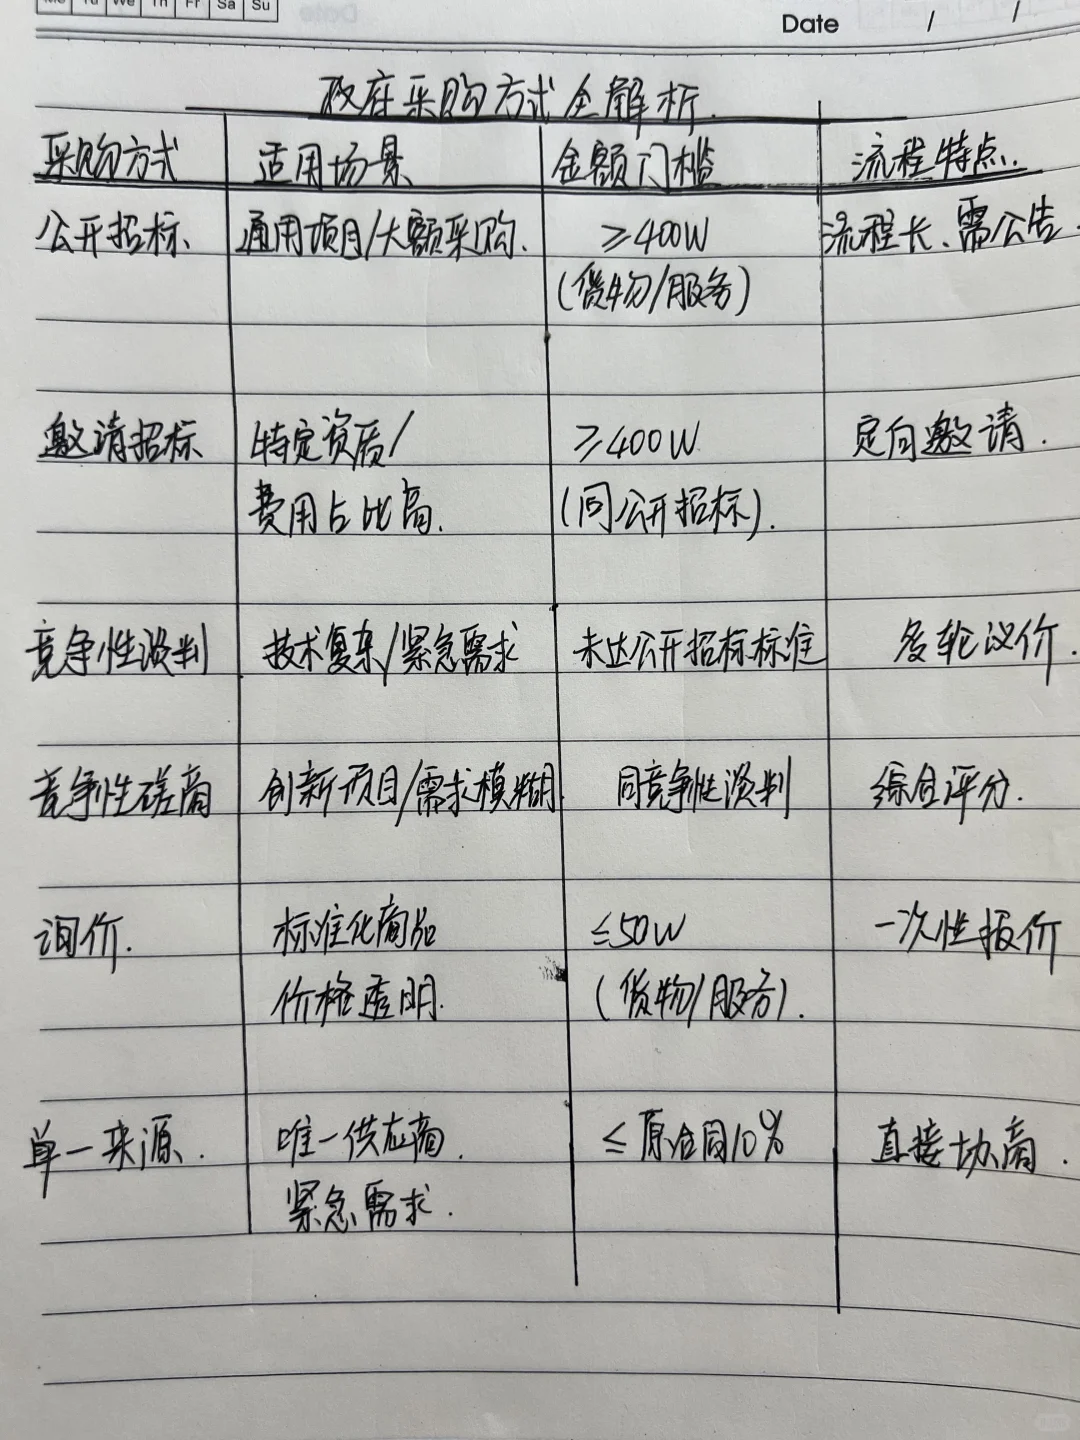 Mo Tu We Th Fr Sa Su
Date / /
政府采购方式全解析.
采购方式 适用场景 金额门槛 流程特点.
公开招标、 通用项目/大额采购. ≥400W 流程长、需公告.
(货物/服务)
邀请招标 特定资质/ ≥400W 定向邀请.
费用占比高. (同公开招标).
竞争性谈判 技术复杂/紧急需求 未达公开招标标准 多轮议价.
竞争性磋商 创新项目/需求模糊. 同竞争性谈判 综合评分.
询价. 标准化商品 ≤50W 一次性报价
价格透明. (货物/服务).
单一来源. 唯一供应商. ≤原合同10% 直接协商.
紧急需求.